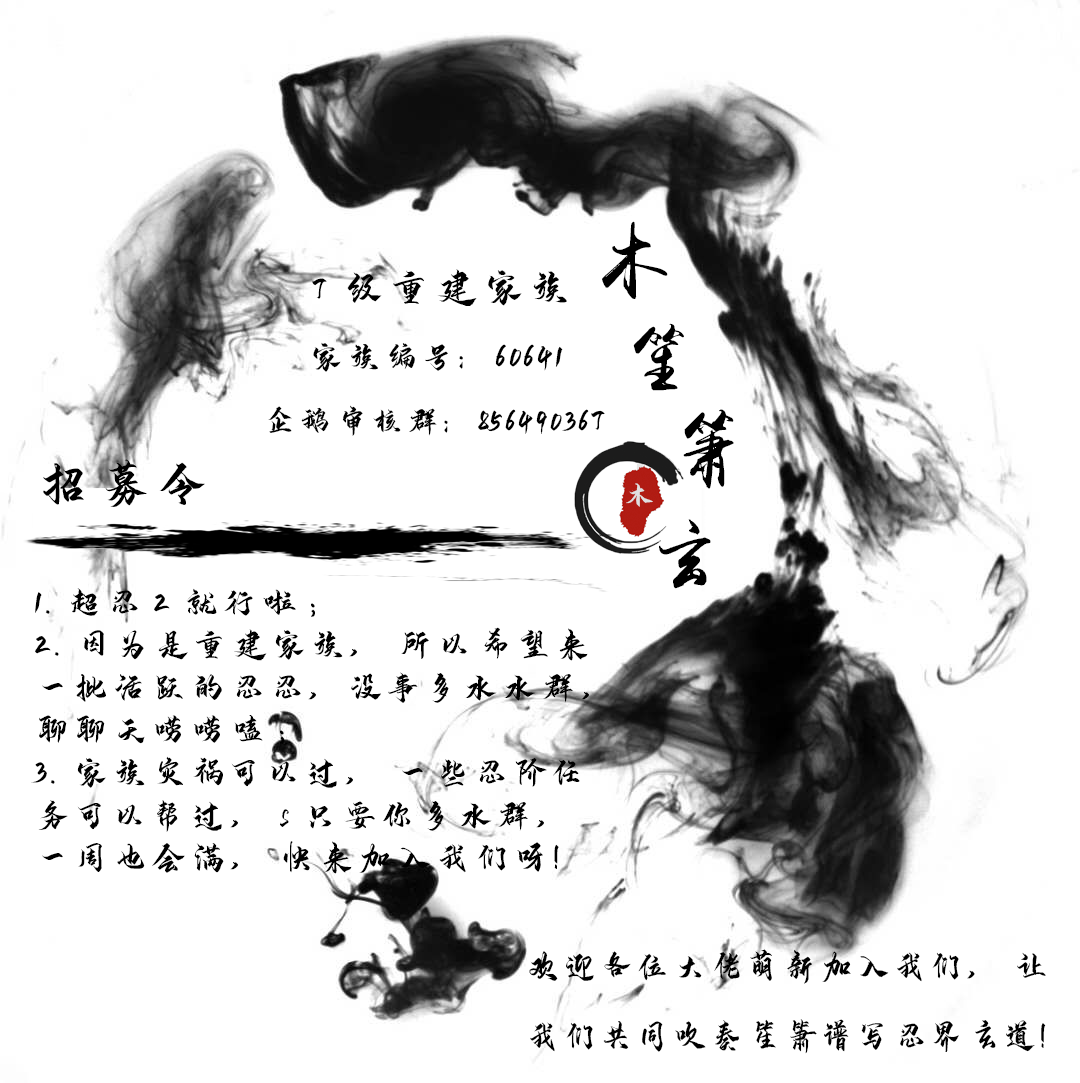 7级重建家族
家族编号：60641
企鹅审核群：856490367
木笙箫玄
木
招募令
1.超忍2就行啦；
2.因为是重建家族，所以希望来
一批活跃的忍忍，没事多水水群，
聊聊天唠唠嗑；
3.家族灾祸可以过，一些忍阶任
务可以帮过，S只要你多水群，
一周也会满，快来加入我们呀！
欢迎各位大佬萌新加入我们，让
我们共同吹奏笙箫谱写忍界玄道！